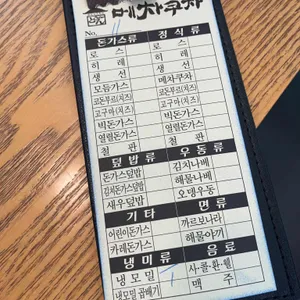 메차쿠차
No.
돈가스류 정식류
로스 로스
히레 히레
생선 생선
모듬가스 메차쿠차
코돈부르(치즈) 코돈부르(치즈)
고구마(치즈) 고구마(치즈)
빅돈가스 빅돈가스
열렬돈가스 열렬돈가스
철판 철판
덮밥류 우동류
돈가스덮밥 김치나베
김치돈가스덮밥 해물나베
새우덮밥 오뎅우동
기타 면류
어린이돈가스 까르보나라
카레돈가스 해물야끼
냉미류 음료
냉모밀 사·콜·환·웰
냉모밀 곱빼기 맥주